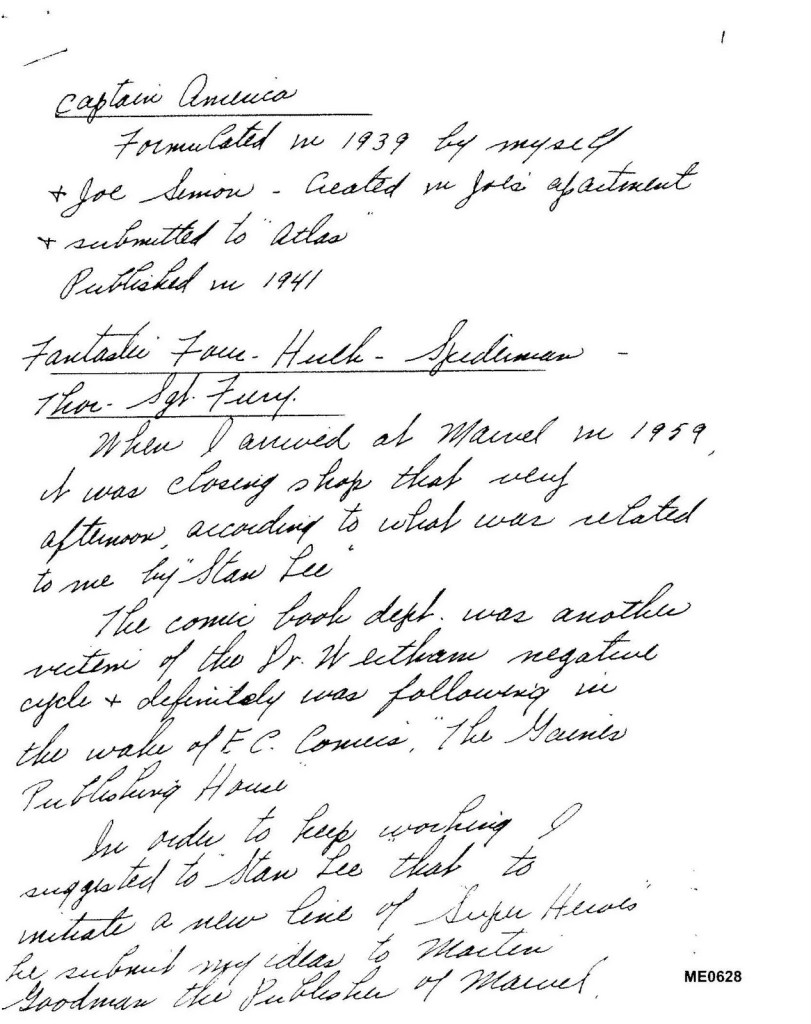 1
Captain America
Formulated in 1939 by myself
+ Joe Simon - Created in Joe's apartment
+ submitted to "Atlas"
Published in 1941
Fantastic Four - Hulk - Spiderman -
Thor - Sgt. Fury.
When I arrived at Marvel in 1959,
it was closing shop that very
afternoon, according to what was related
to me by "Stan Lee"
The comic book dept. was another
victim of the Dr. Wertham negative
cycle + definitely was following in
the wake of E.C. Comics, "The Gaines
Publishing House"
In order to keep working I
suggested to Stan Lee that to
initiate a new line of "Super Heroes"
he submit my ideas to Martin
Goodman the Publisher of Marvel.
ME0628